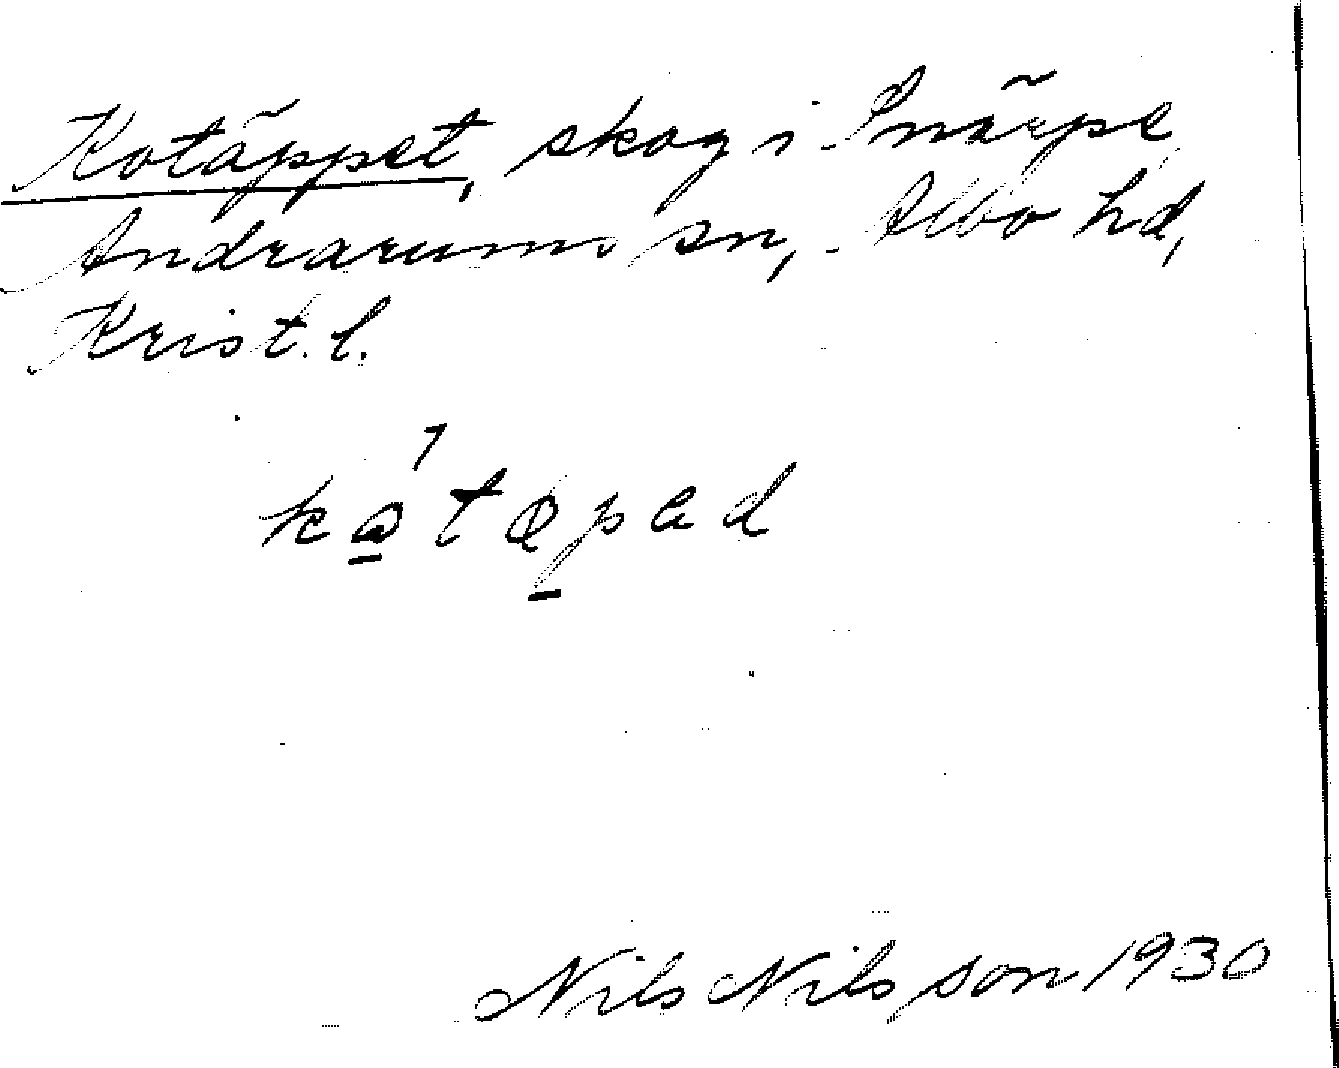 Kotäppet, skog i Snärpe
Andrarums sn, Albo hd,
Krist. l.
Nils Nilsson 1930